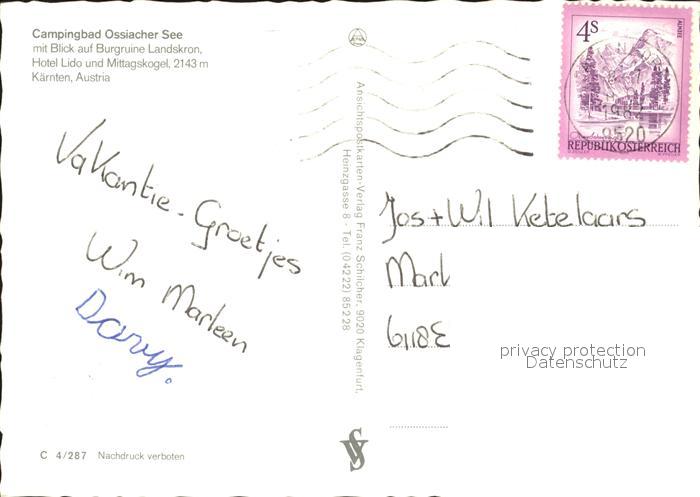 Campingbad Ossiacher See
mit Blick auf Burgruine Landskron,
Hotel Lido und Mittagskogel, 2143 m
Kärnten, Austria
Vakantie - Groetjes
Wim Marleen
Davy.
C 4/287 Nachdruck verboten
Ansichtspostkarten-Verlag Franz Schilcher, 9020 Klagenfurt,
Heinzgasse 8 - Tel. (04222) 85228
4S
ALMSEE
REPUBLIK ÖSTERREICH
9520
Jos + Wil Ketelaars
Mart
6118E
privacy protection
Datenschutz